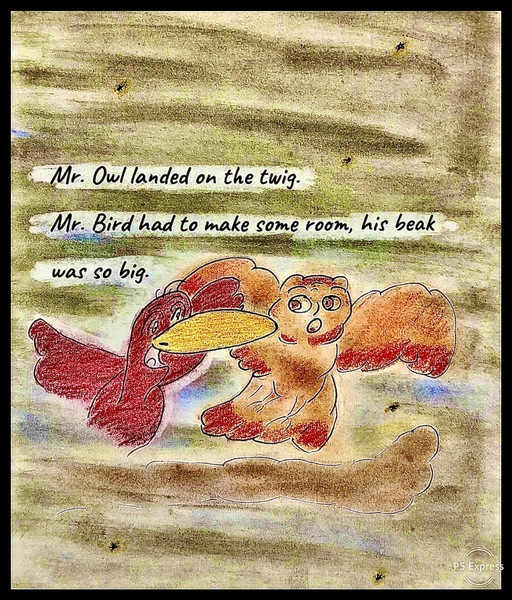 Mr. Owl landed on the twig.
Mr. Bird had to make some room, his beak
was so big.
PS Express